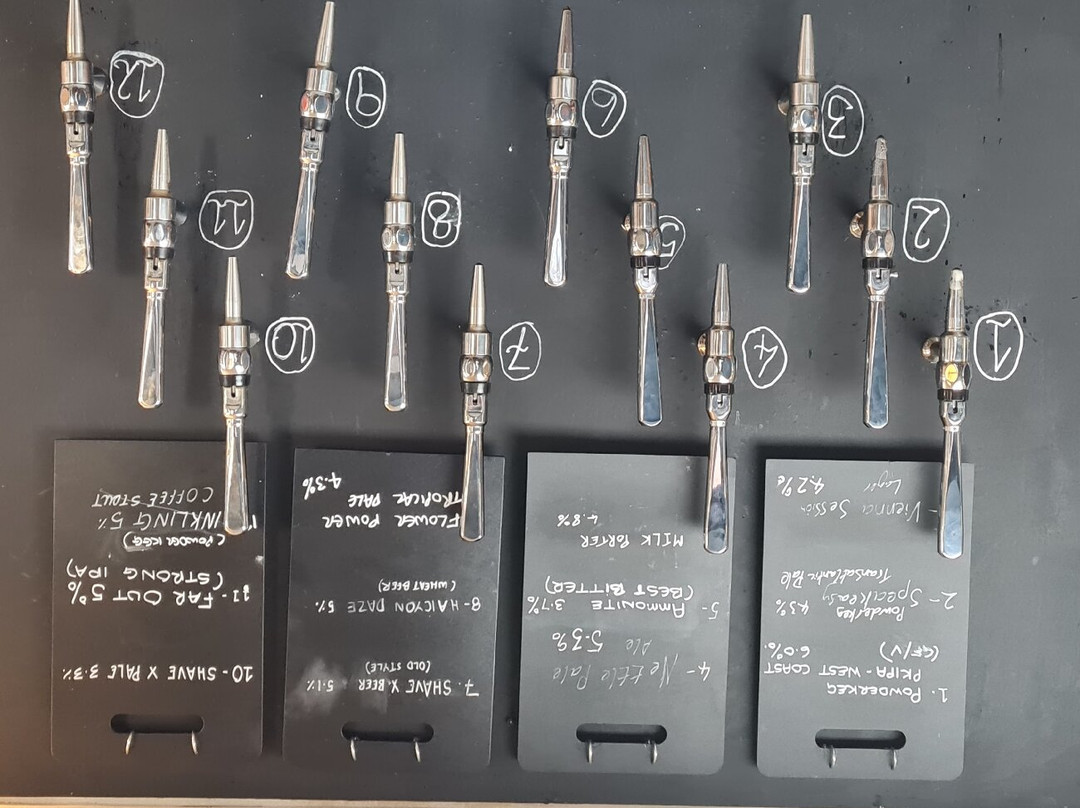 1
2
3
4
5
6
7
8
9
10
11
12
1. POWDERKEG
PKIPA - WEST COAST
(GF/V) 6.0%.
2 - Speakeasy
Powderkeg 4.3%
Transatlantic Pale
- Vienna Session
Lager 4.2%
4 - Nettle Pale
Ale 5.3%
5- AMMONITE 3.7%
(BEST BITTER)
MILK PORTER
4.8%
7. SHAVE X BEER 5.1%
(OLD STYLE)
8 - HALCYON DAZE 5%
(WHEAT BEER)
FLOWER POWER
TROPICAL PALE
4.3%
10 - SHAVE X PALE 3.3%
11 - FAR OUT 5%
(STRONG IPA)
(POWDERKEG)
INKLING 5%
COFFEE STOUT